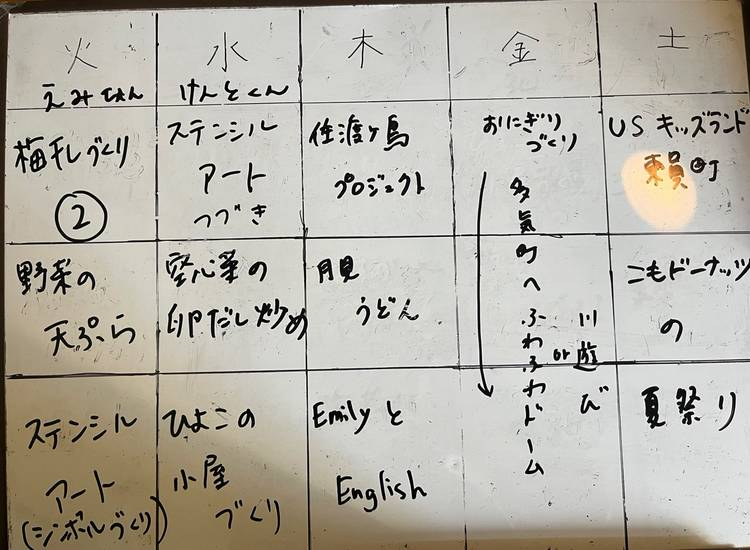 火
水
木
金
土
えみちゃん
けんとくん
梅干しづくり
②
ステンシル
アート
つづき
佳渡ヶ島
プロジェクト
おにぎり
づくり
多気町へふわふわドーム
or
川遊び
US キッズランド
町
野菜の
天ぷら
空心菜の
卵だし炒め
月見
うどん
こもドーナッツ
の
夏祭り
ステンシル
アート
(シンボルづくり)
ひよこの
小屋
づくり
Emilyと
English